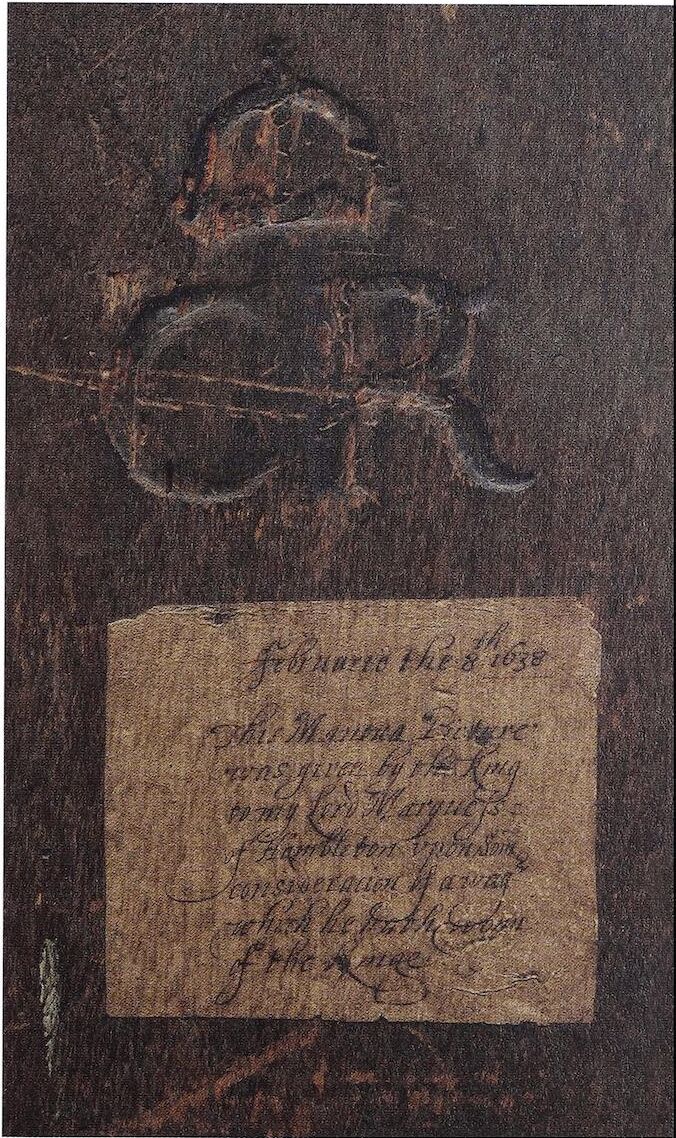 CR
februarie the 8th 1638
This Mantua Picture
was given by the King
to my lord Marquess
of Hambleton vpon Som
consideracion of a wag
which he hath
of the Kinge